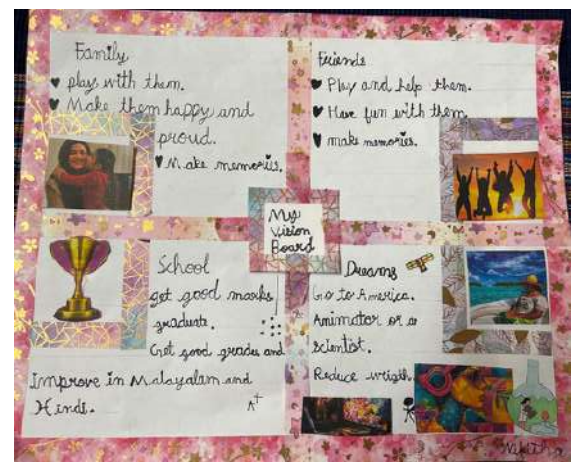 Family
play with them.
Make them happy and
proud.
Make memories.
Friends
Play and help them.
Have fun with them
make memories.
My
Vision
Board
School
get good marks
graduate.
Get good grades and
Improve in Malayalam and
Hindi.
A+
Dreams
Go to America.
Animator or a
scientist.
Reduce